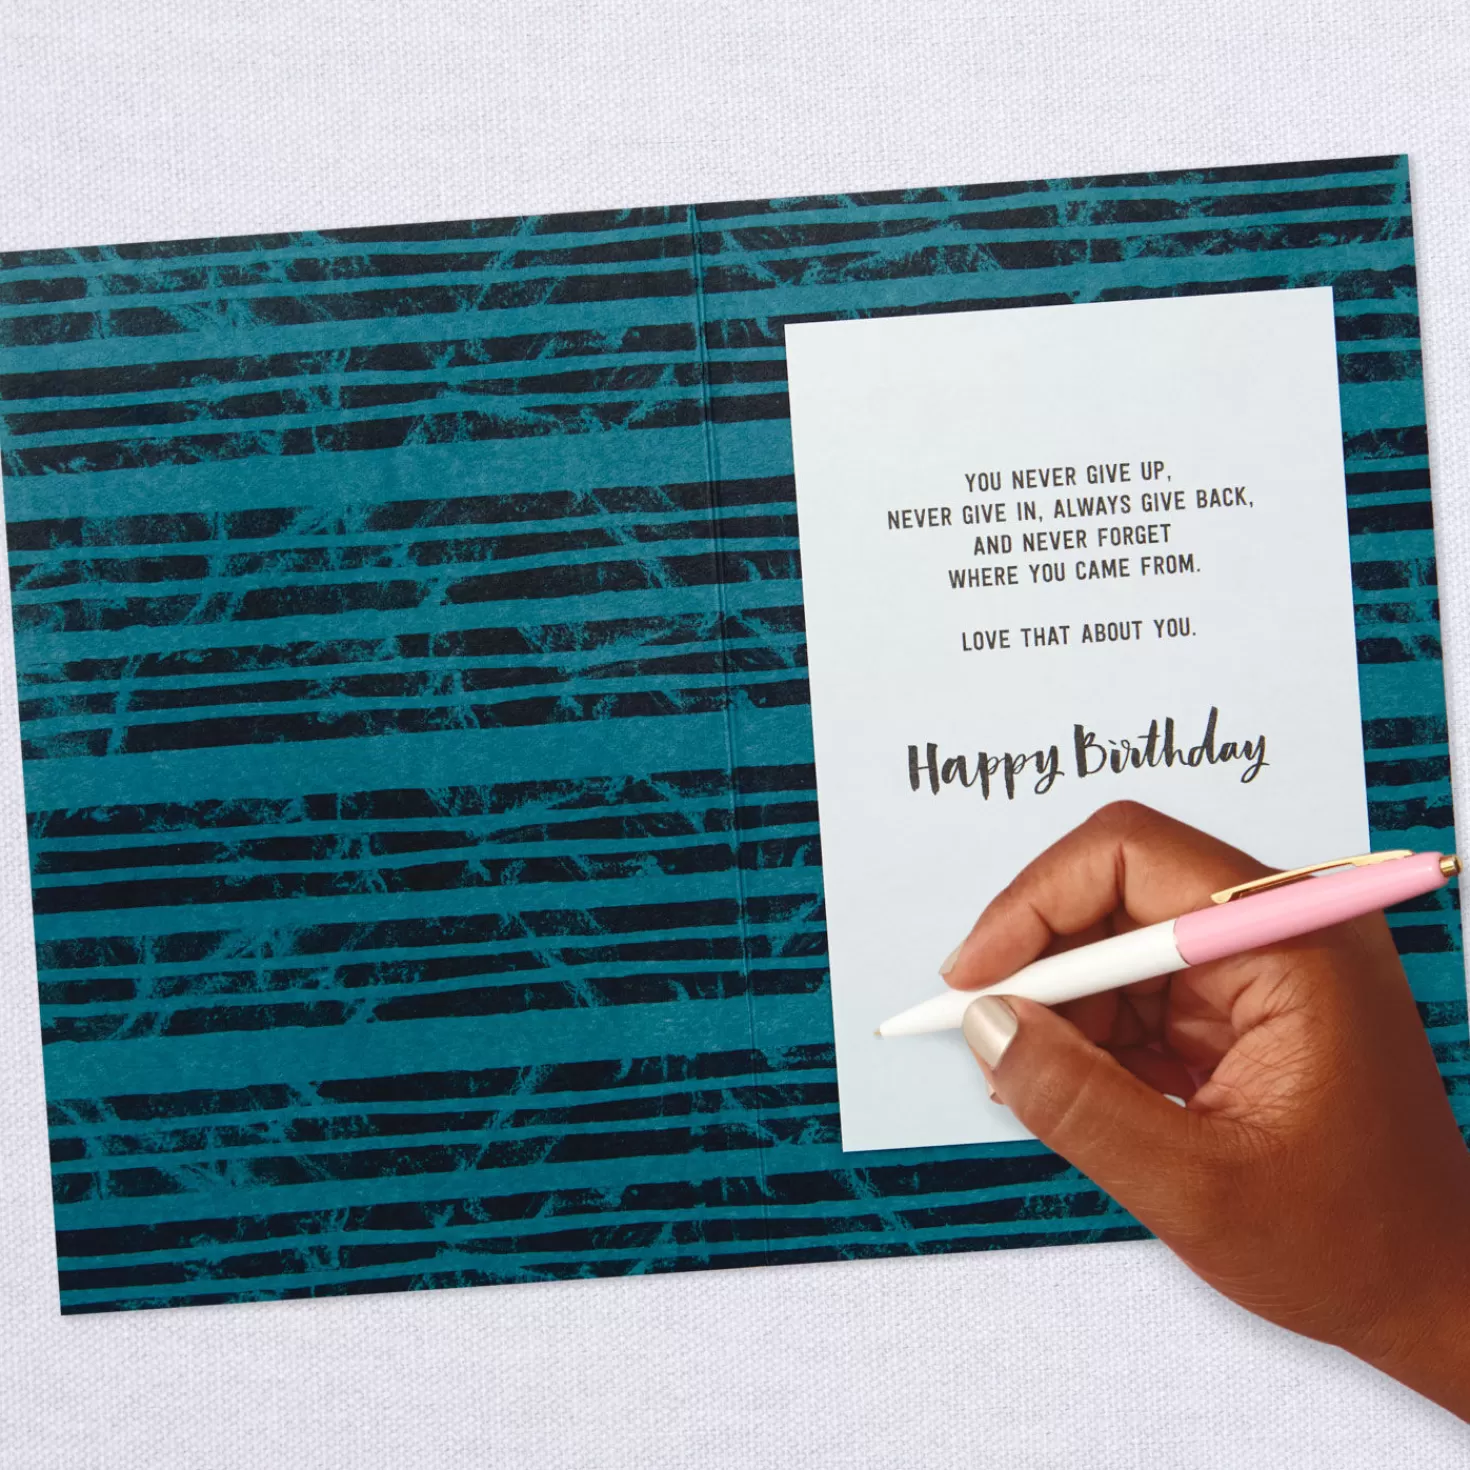 YOU NEVER GIVE UP,
NEVER GIVE IN, ALWAYS GIVE BACK,
AND NEVER FORGET
WHERE YOU CAME FROM.
LOVE THAT ABOUT YOU.
Happy Birthday